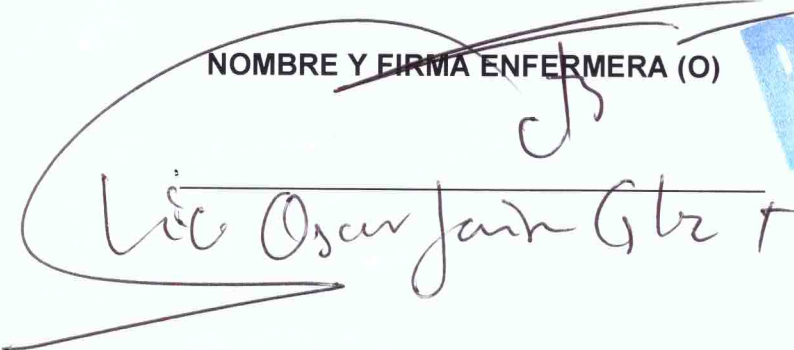 NOMBRE Y FIRMA ENFERMERA (O)
Lic Oscar Jair Glz